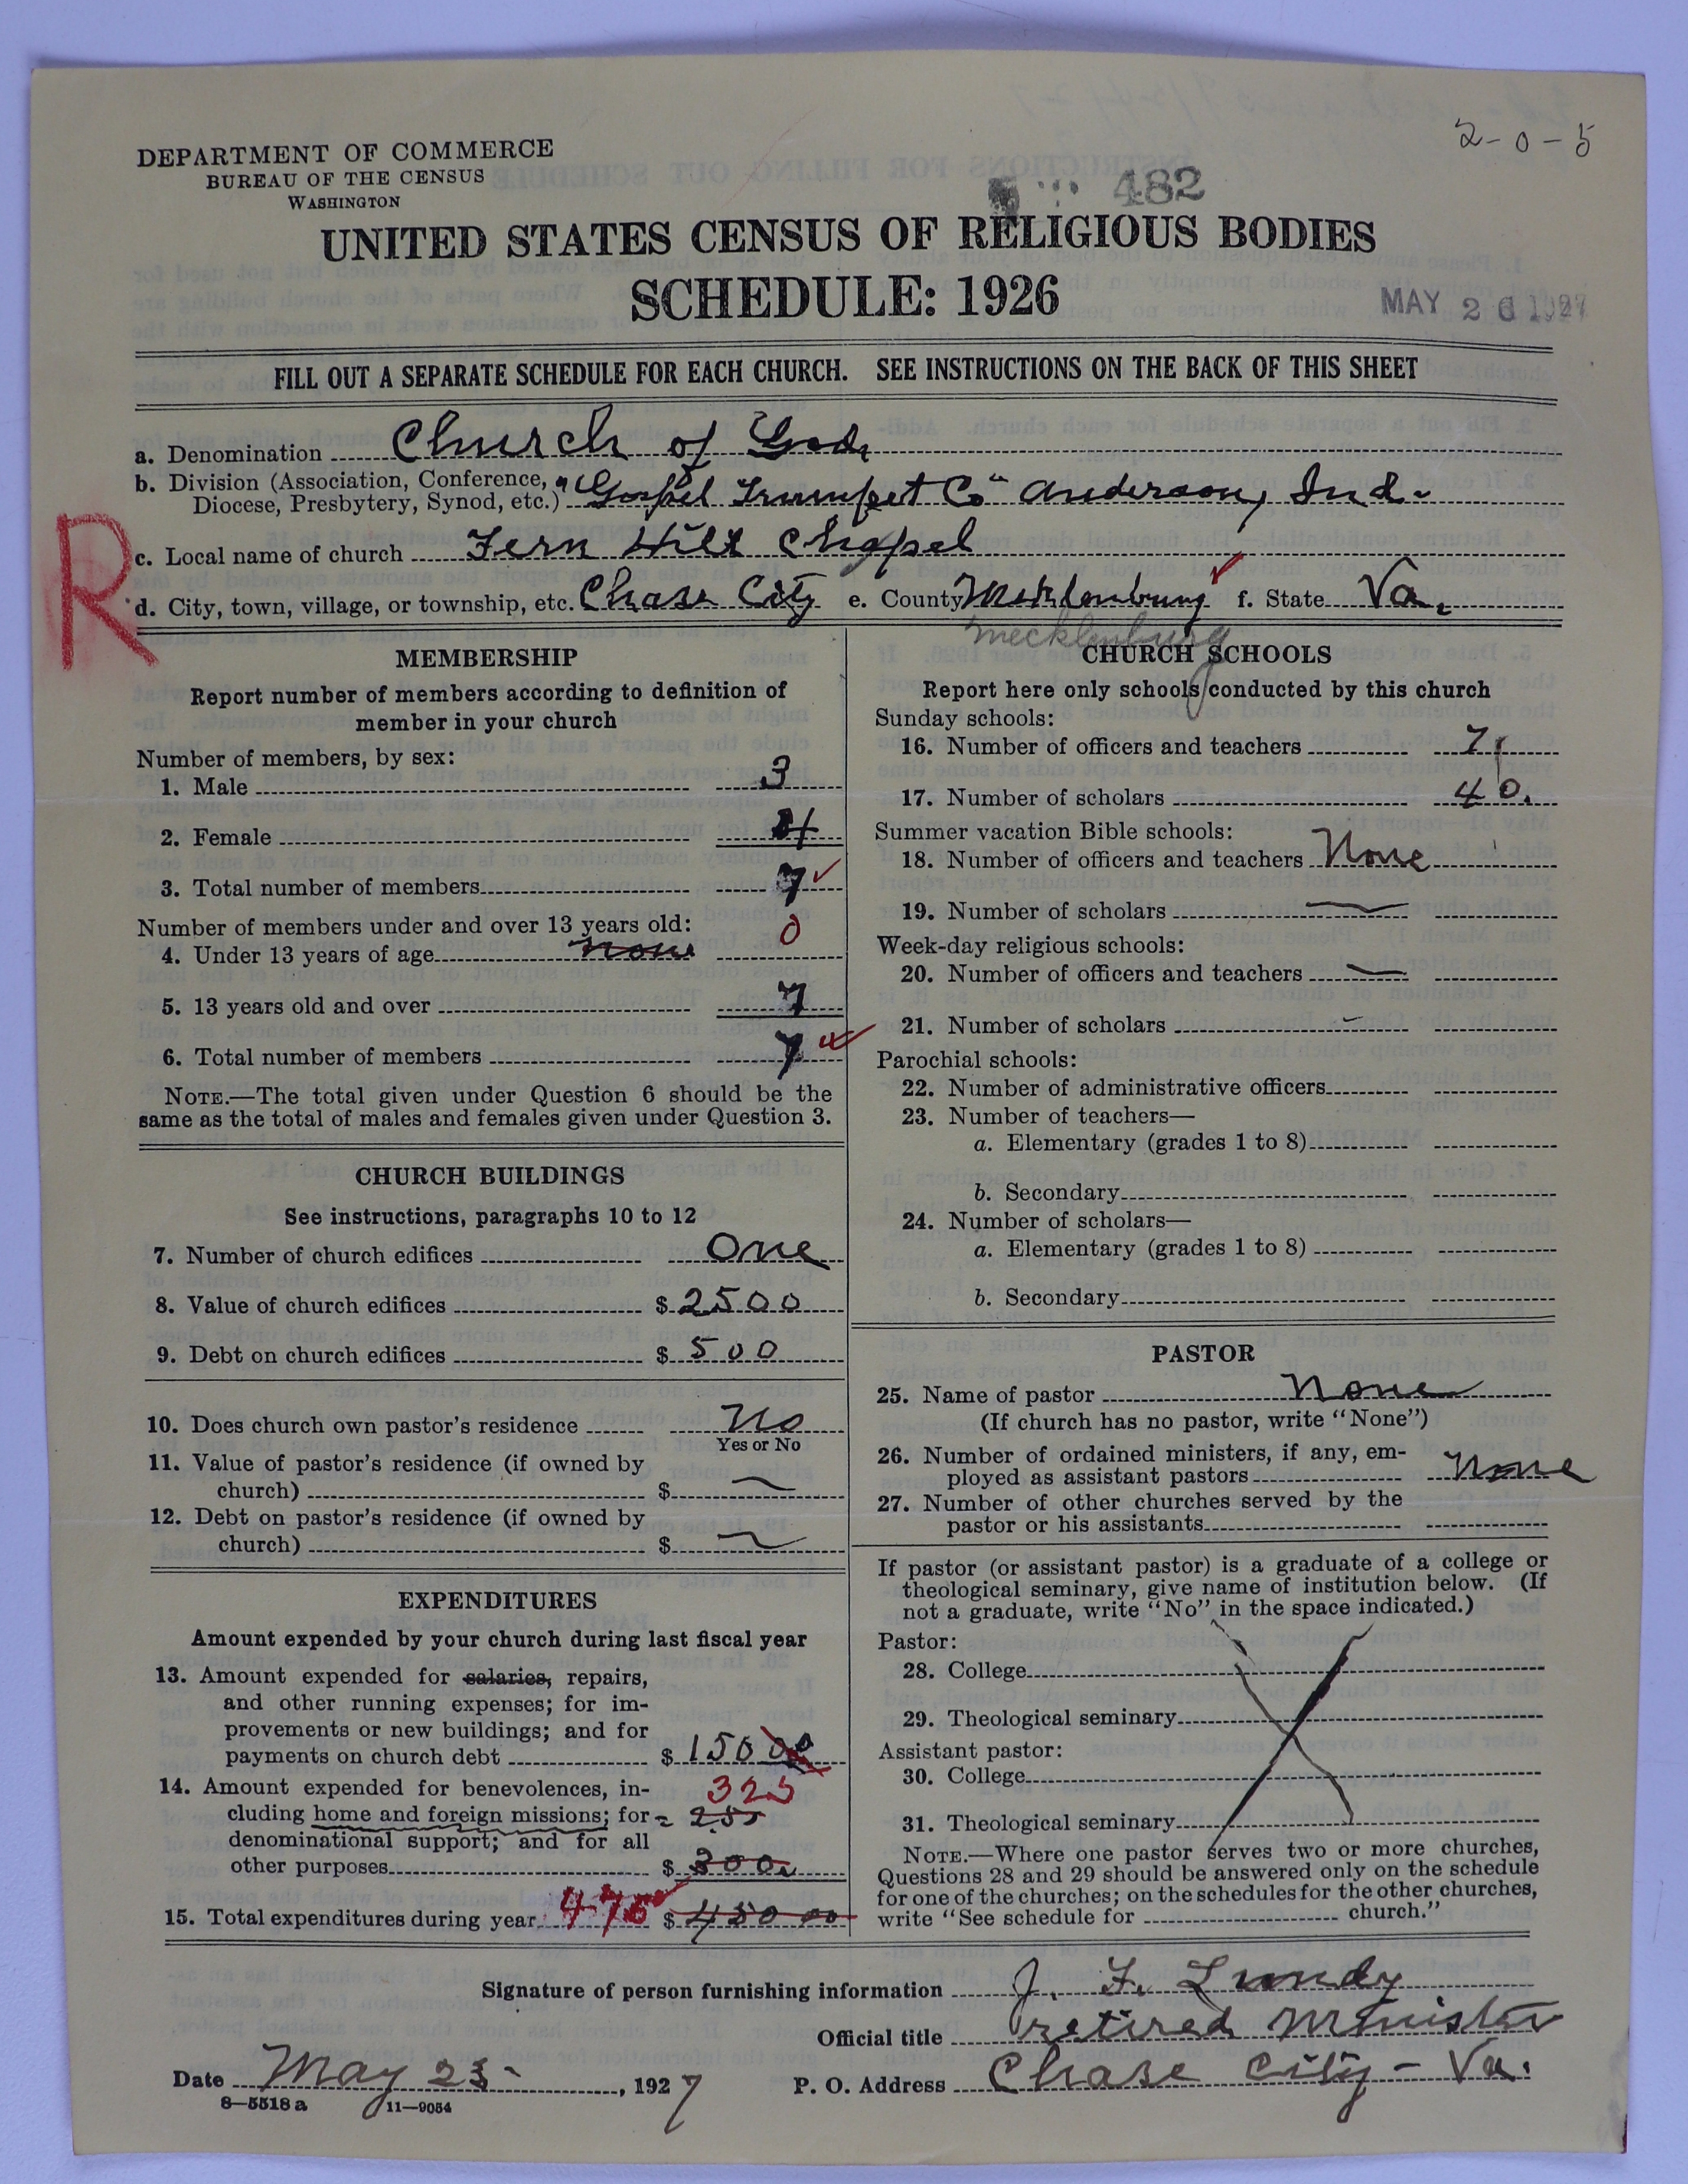 2-0-5
DEPARTMENT OF COMMERCE
BUREAU OF THE CENSUS
WASHINGTON
482
UNITED STATES CENSUS OF RELIGIOUS BODIES
SCHEDULE: 1926
MAY 26 1927
FILL OUT A SEPARATE SCHEDULE FOR EACH CHURCH. SEE INSTRUCTIONS ON THE BACK OF THIS SHEET
R
a. Denomination Church of God,
b. Division (Association, Conference,
Diocese, Presbytery, Synod, etc.) "Gospel Trumpet Co" Anderson, Ind.
c. Local name of church Fern Hill Chapel
d. City, town, village, or township, etc. Chase City e. County Mecklenburg f. State Va.
Mecklenburg
MEMBERSHIP
Report number of members according to definition of
member in your church
Number of members, by sex:
1. Male 3
2. Female 4
3. Total number of members 7
Number of members under and over 13 years old:
0
4. Under 13 years of age none
5. 13 years old and over 7
6. Total number of members 7
NOTE.—The total given under Question 6 should be the
same as the total of males and females given under Question 3.
CHURCH BUILDINGS
See instructions, paragraphs 10 to 12
7. Number of church edifices One
8. Value of church edifices $ 2500
9. Debt on church edifices $ 500
10. Does church own pastor's residence No
Yes or No
11. Value of pastor's residence (if owned by
church) $ —
12. Debt on pastor's residence (if owned by
church) $ —
EXPENDITURES
Amount expended by your church during last fiscal year
13. Amount expended for salaries, repairs,
and other running expenses; for im-
provements or new buildings; and for
payments on church debt $ 150 00
14. Amount expended for benevolences, in- 325
cluding home and foreign missions; for
denominational support; and for all
other purposes $ 300.
15. Total expenditures during year 475 $ 450 00
CHURCH SCHOOLS
Report here only schools conducted by this church
Sunday schools:
16. Number of officers and teachers 7
17. Number of scholars 40.
Summer vacation Bible schools:
18. Number of officers and teachers None
19. Number of scholars —
Week-day religious schools:
20. Number of officers and teachers —
21. Number of scholars -
Parochial schools:
22. Number of administrative officers
23. Number of teachers—
a. Elementary (grades 1 to 8)
b. Secondary
24. Number of scholars—
a. Elementary (grades 1 to 8)
b. Secondary
PASTOR
25. Name of pastor None
(If church has no pastor, write "None")
26. Number of ordained ministers, if any, em-
ployed as assistant pastors None
27. Number of other churches served by the
pastor or his assistants
If pastor (or assistant pastor) is a graduate of a college or
theological seminary, give name of institution below. (If
not a graduate, write "No" in the space indicated.)
Pastor:
28. College
29. Theological seminary
Assistant pastor:
30. College
31. Theological seminary
NOTE.—Where one pastor serves two or more churches,
Questions 28 and 29 should be answered only on the schedule
for one of the churches; on the schedules for the other churches,
write "See schedule for church."
Signature of person furnishing information J. F. Lundy
Official title retired Minister
Date May 23- , 1927 P. O. Address Chase City - Va.
8—5518 a 11—9054